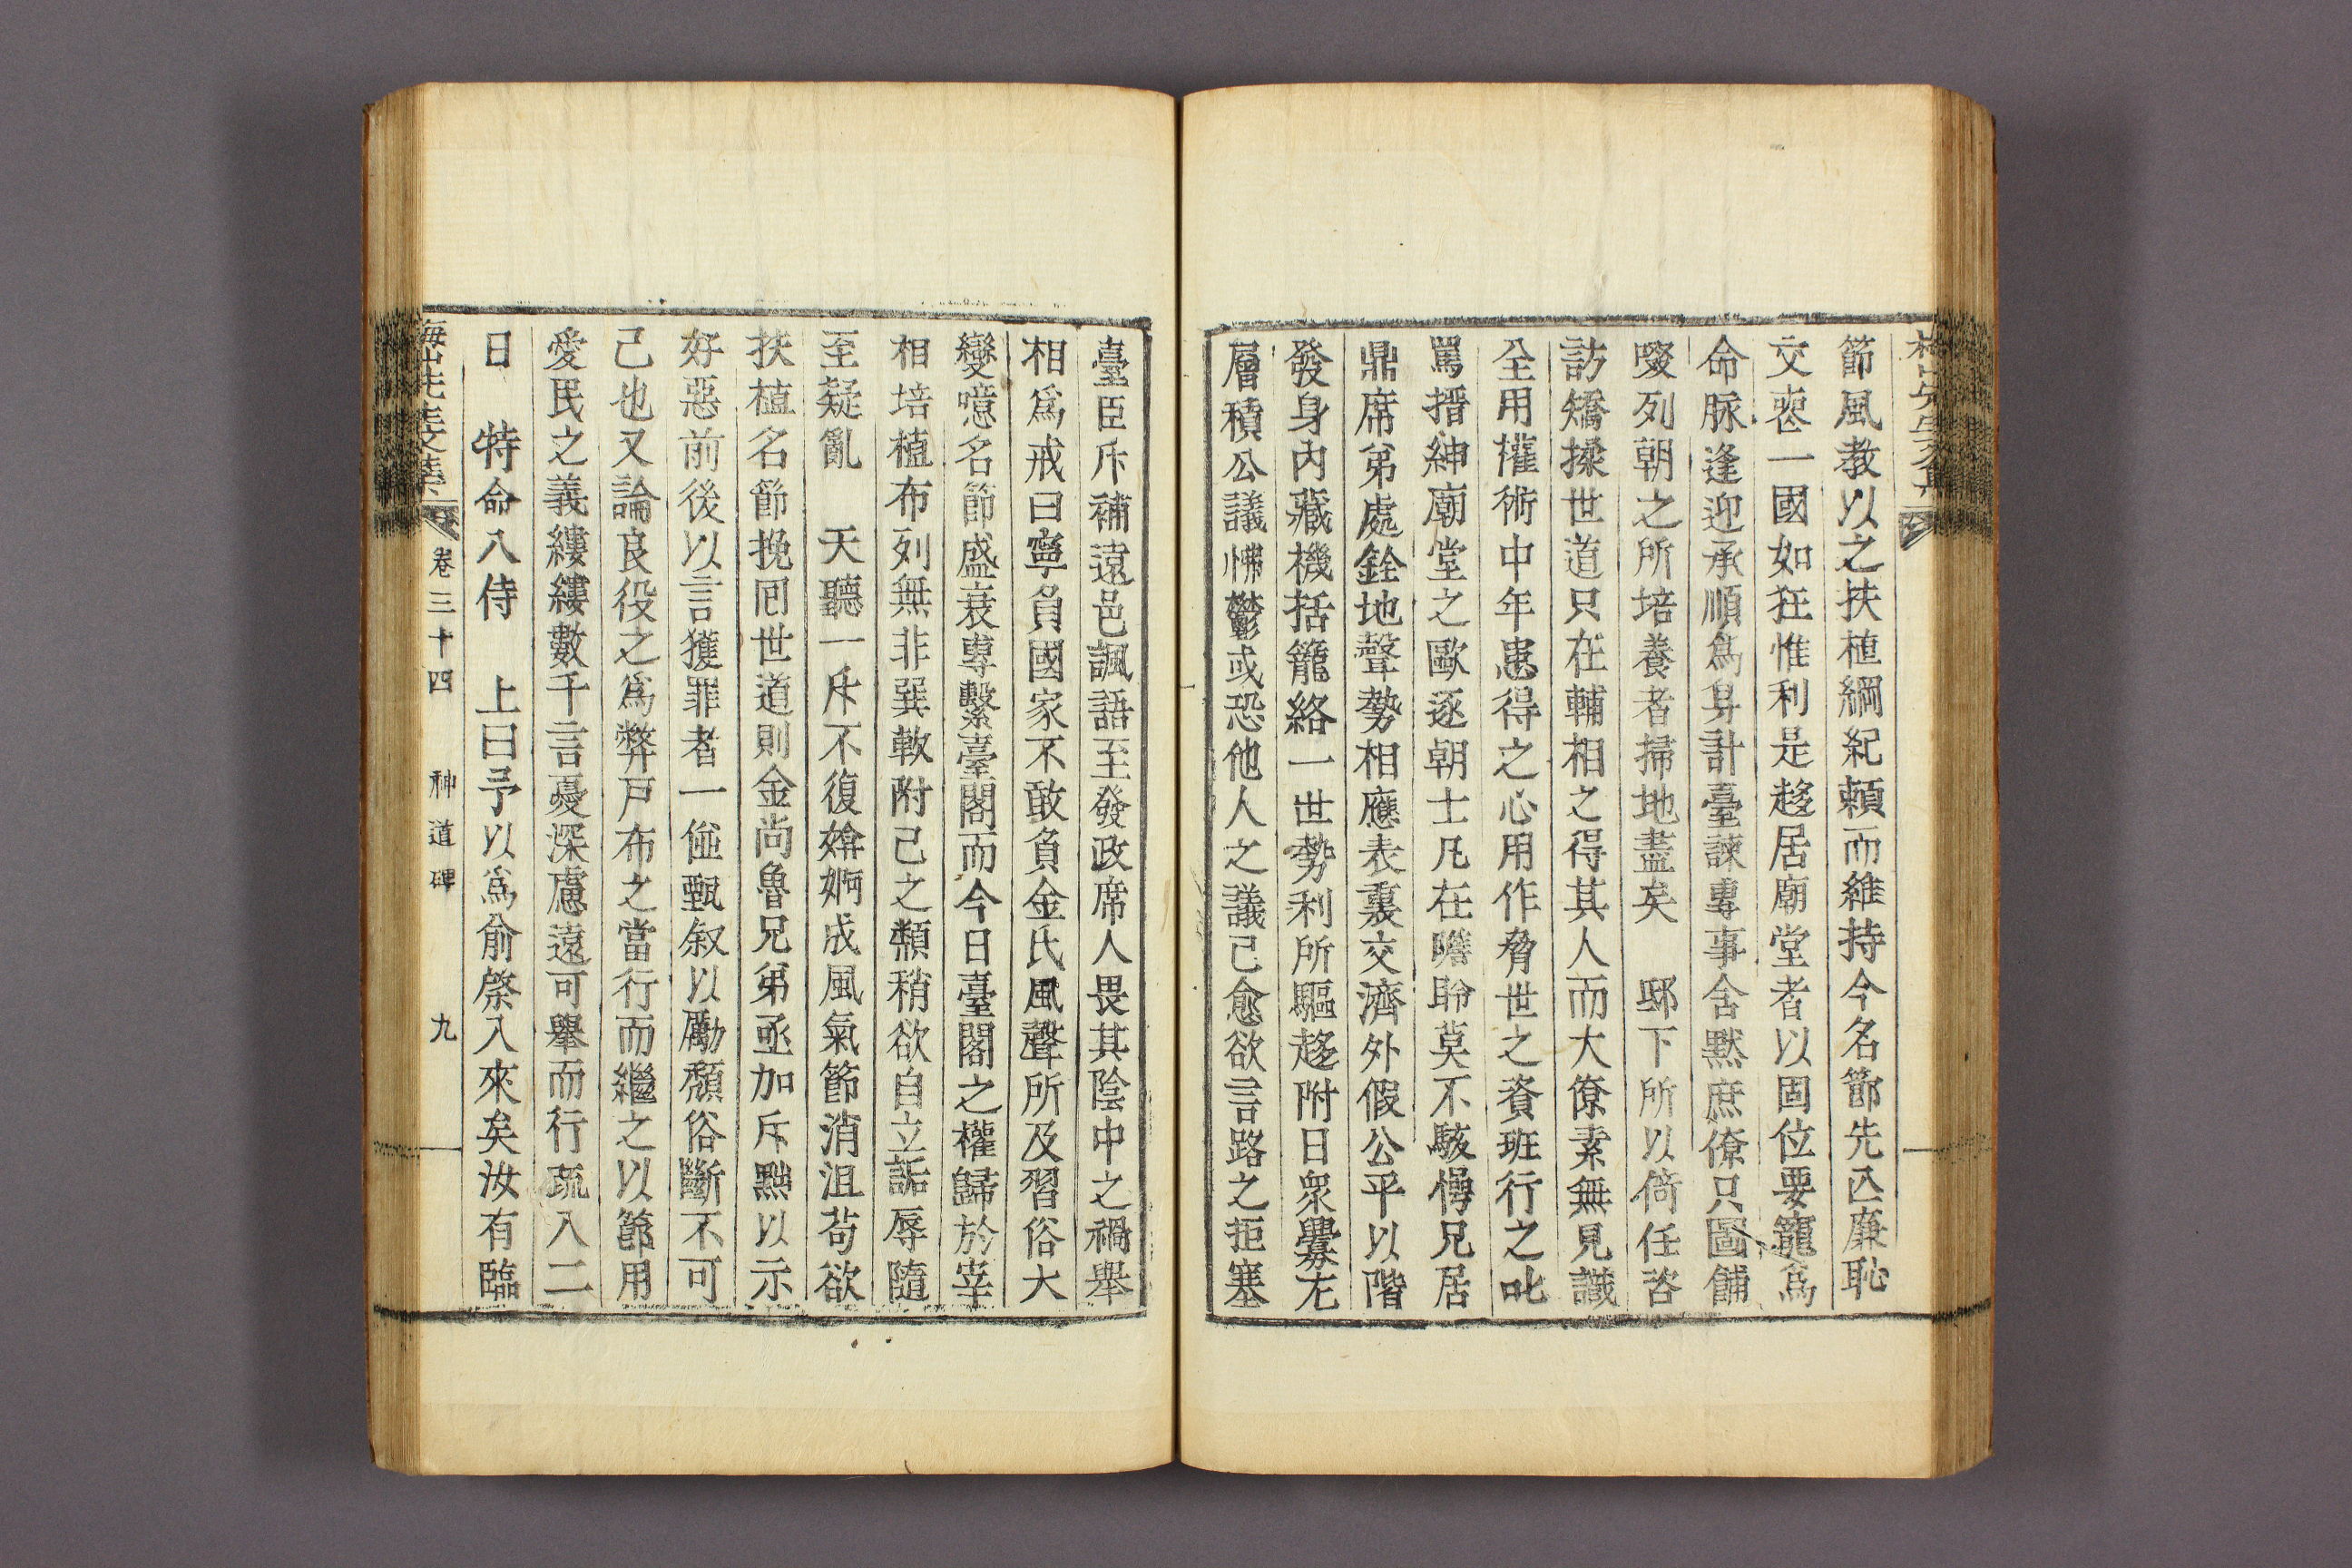 節風敎以之扶植綱紀頼而維持今名節先亾廉恥
交喪一國如狂惟利是趍居廟堂者以固位要寵爲
命脉逢迎承順爲身計臺諫專事含默庶僚只圖餔
啜列朝之所培養者掃地盡矣 邸下所以倚任咨
訪矯揉世道只在輔相之得其人而大僚素無見識
全用權術中年患得之心用作脅世之資班行之叱
罵搢紳廟堂之歐逐朝士凡在瞻聆莫不駭愕兄居
鼎席弟處銓地聲勢相應表裏交濟外假公平以階
發身內藏機括籠絡一世勢利所驅趍附日衆釁尤
層積公議怫鬱或恐他人之議己愈欲言路之拒塞
臺臣斥補遠邑諷語至發政席人畏其陰中之禍舉
相爲戒曰寧負國家不敢負金氏風聲所及習俗大
變噫名節盛衰專繫臺閣而今日臺閣之權歸於宰
相培植布列無非巽軟附己之類稍欲自立詬辱隨
至疑亂 天聽一斥不復媕婀成風氣節消沮苟欲
扶植名節挽回世道則金尙魯兄弟亟加斥黜以示
好惡前後以言獲罪者一倂甄叙以勵頽俗斷不可
已也又論良役之爲弊戶布之當行而繼之以節用
愛民之義縷縷數千言憂深慮遠可舉而行疏入二
日 特命入侍 上曰予以爲兪棨入來矣汝有臨
梅山先生文集 卷三十四 神道碑 九